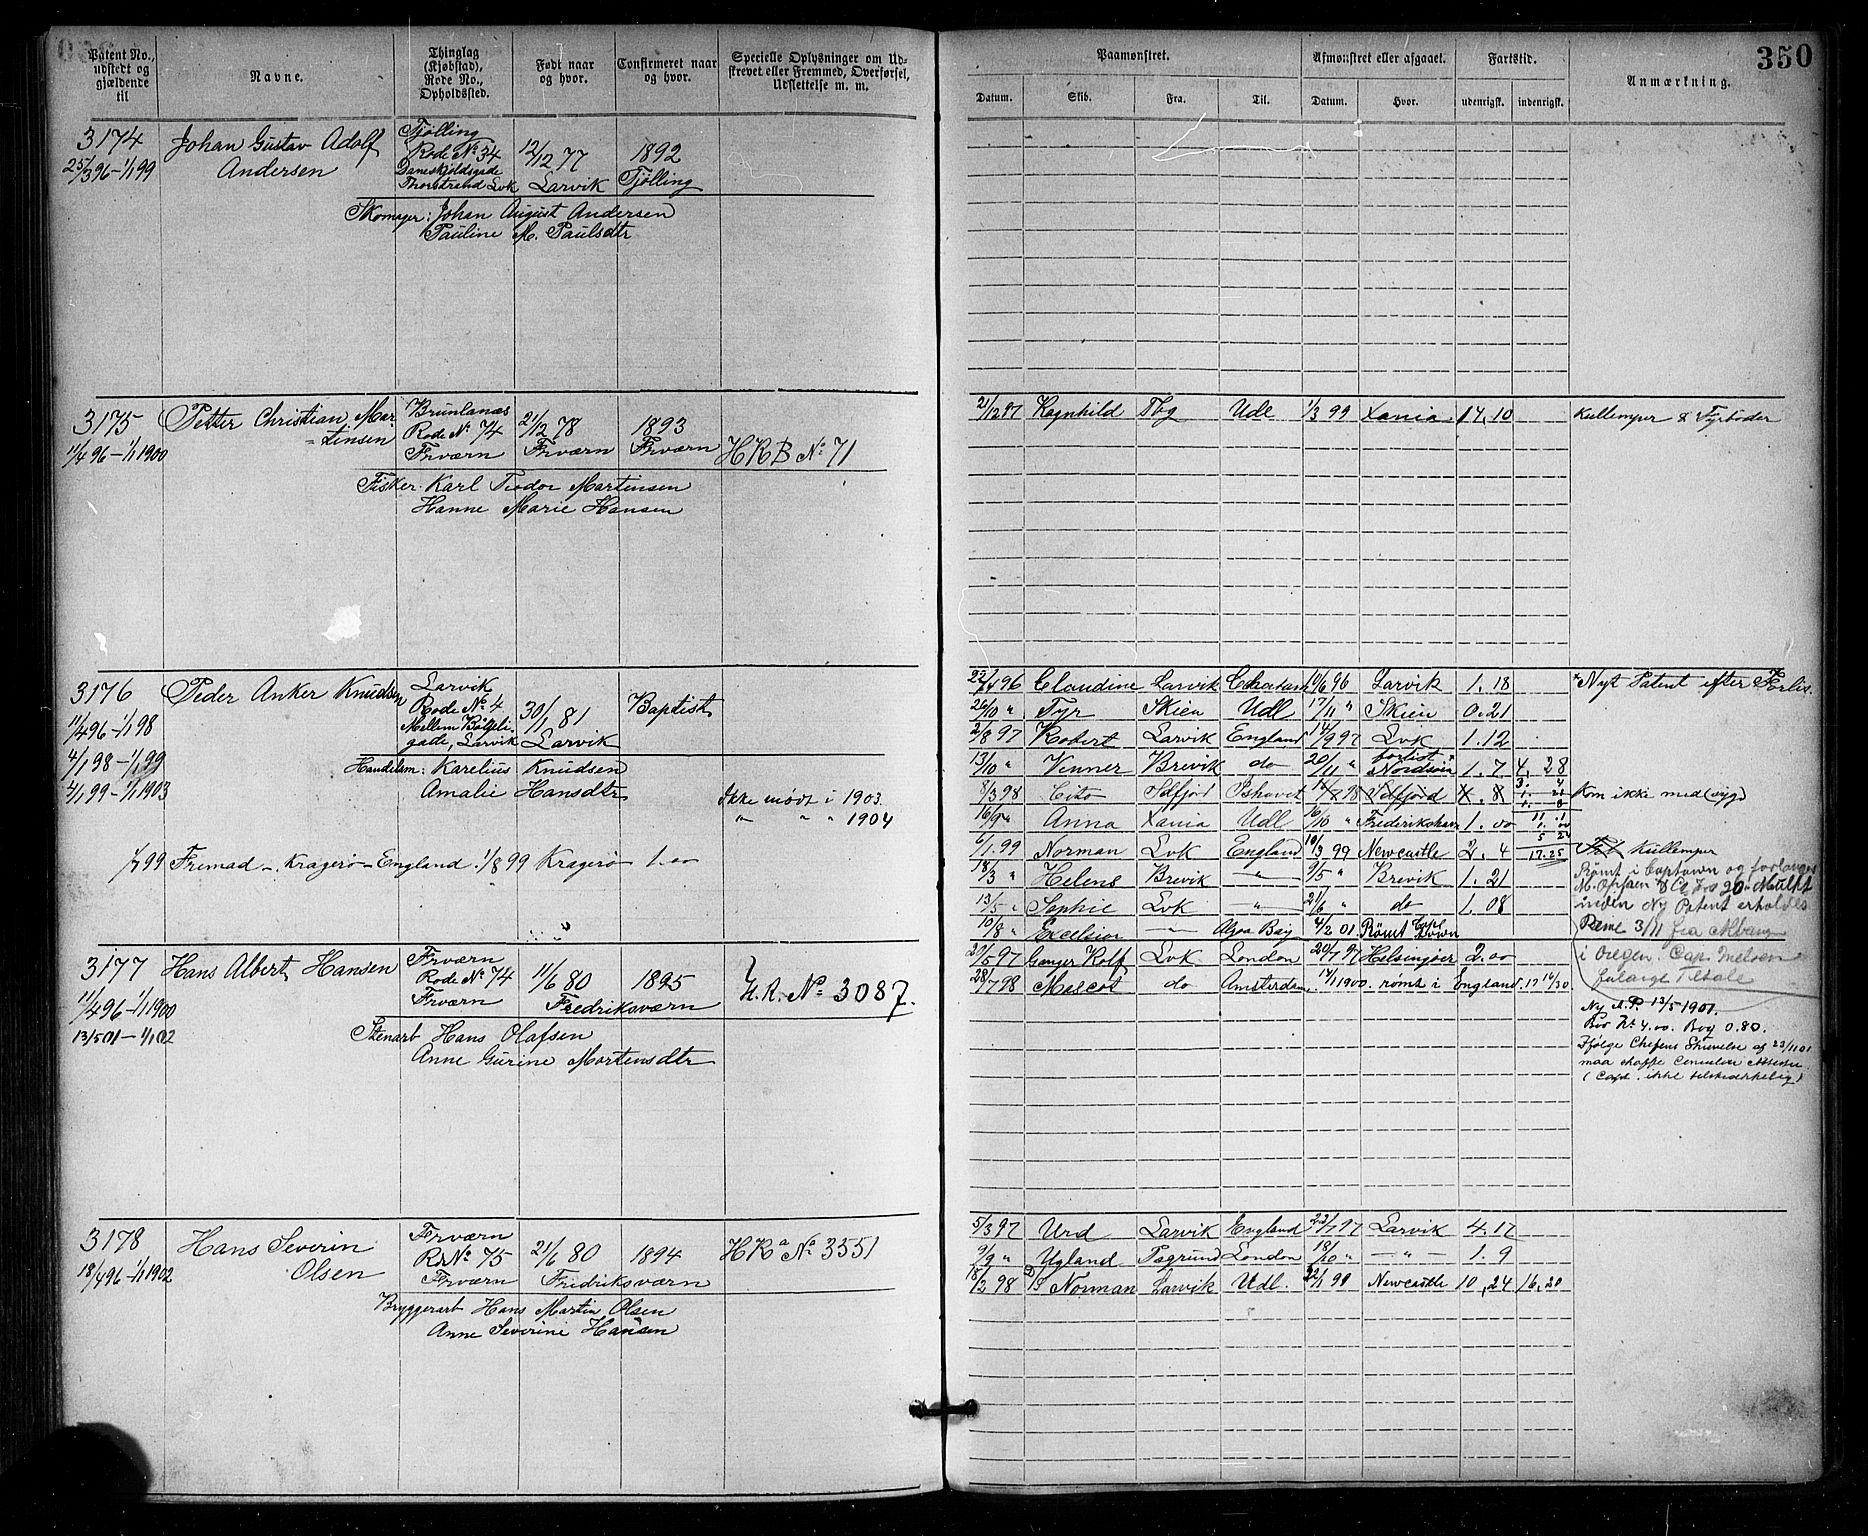 350
Patent No., udstedt og gjældende til
Navne.
Thinglag (Kjøbstad), Rode No., Opholdssted.
Født naar og hvor.
Confirmeret naar og hvor.
Specielle Oplysninger om Udskrevet eller Fremmed, Overførsel, Udslettelse m. m.
Paamønstret.
Afmønstret eller afgaaet.
Fartstid.
Anmærkning.
Datum. Skib. Fra. Til. Datum. Hvor. udenrigsk. indenrigsk.
3174 Johan Gustav Adolf Andersen
25/3 96 - 1/1 99
Tjølling
Rode No 34
Daneskjoldsgade
Thorstrand Lvk
12/12 77
Larvik
1892
Tjølling
Skomager: Johan August Andersen
Pauline M. Paulsdtr
3175 Petter Christian Mar-
tinsen
11/4 96 - 1/1 1900
Brunlanæs
Rode No 74
Frværn
21/12 78
Frværn
1893
Frværn
HRB No 71
Fisker Karl Tiodor Martinsen
Hanne Marie Hansen
2/12 97 Ragnhild Tbg Udl 1/3 99 Xania 14.10 Kullemper & Fyrbøder
3176 Peder Anker Knudsen
11/4 96 - 1/1 98
4/1 98 - 1/1 99
4/1 99 - 1/1 1903
Larvik
Rode No 4
Mellem Bøgeli-
gade, Larvik
30/1 81
Larvik
Baptist
Handelsm: Karelius Knudsen
Amalie Hansdtr
Ikke mødt i 1903
" " " 1904
1/7 99 Fremad - Kragerø - England 1/8 99 Kragerø 1.00
22/4 96 Claudine Larvik 10/6 96 Larvik 1.18 Nyt Patent efter Forlis
26/10 " Tyr Skien Udl 17/11 " Skien 0.21
2/8 97 Robert Larvik England 14/9 97 Lvk 1.12
13/10 " Venner Brevik do 20/11 " forlist Nordsøen 1.7 4.28
8/3 98 Cito Idfjord Ishavet Idfjord Kom ikke med (syg)
16/9 " Anna Xania Udl 16/10 " Frederikshavn 1.00
6/1 99 Norman Lvk England 10/3 99 Newcastle 2.4 17.25 Kullemper
18/3 " Helens Brevik " 9/5 " Brevik 1.21
13/5 " Sophie Lvk " 21/6 " do 1.08
10/8 " Excelsior " Algoa Bay 4/2 01 Rømt Cape Town
Rømt i Captown og forlanges
inden Ny Patent erholdes
Reme 3/11 fra
i Oregen. Capt.
3177 Hans Albert Hansen
11/4 96 - 1/1 1900
13/5 01 - 1/1 02
Frværn
Rode No 74
Frværn
11/6 80
Fredriksværn
1895
H.R. No 3087.
Stenarb Hans Olafsen
Anne Gurine Mortensdtr
21/5 97 Ganger Rolf Lvk London 20/7 97 Helsingøer 2.00
28/7 98 Mascot do Amsterdam 14/1 1900 rømt i England
Ny A.P. 13/5 1901.
3178 Hans Severin
Olsen
18/4 96 - 1/1 1902
Frværn
Rd No 75
Frværn
21/6 80
Fredriksværn
1894
HRa No 3551
Bryggerarb Hans Martin Olsen
Anne Severine Hansen
5/3 97 Urd Larvik England 23/7 97 Larvik 4.17
9/9 " Ugland Psgrund London 18/10 " - " - 1.9
18/2 98 D/S Norman Larvik Udl. Newcastle 10.24 16.20